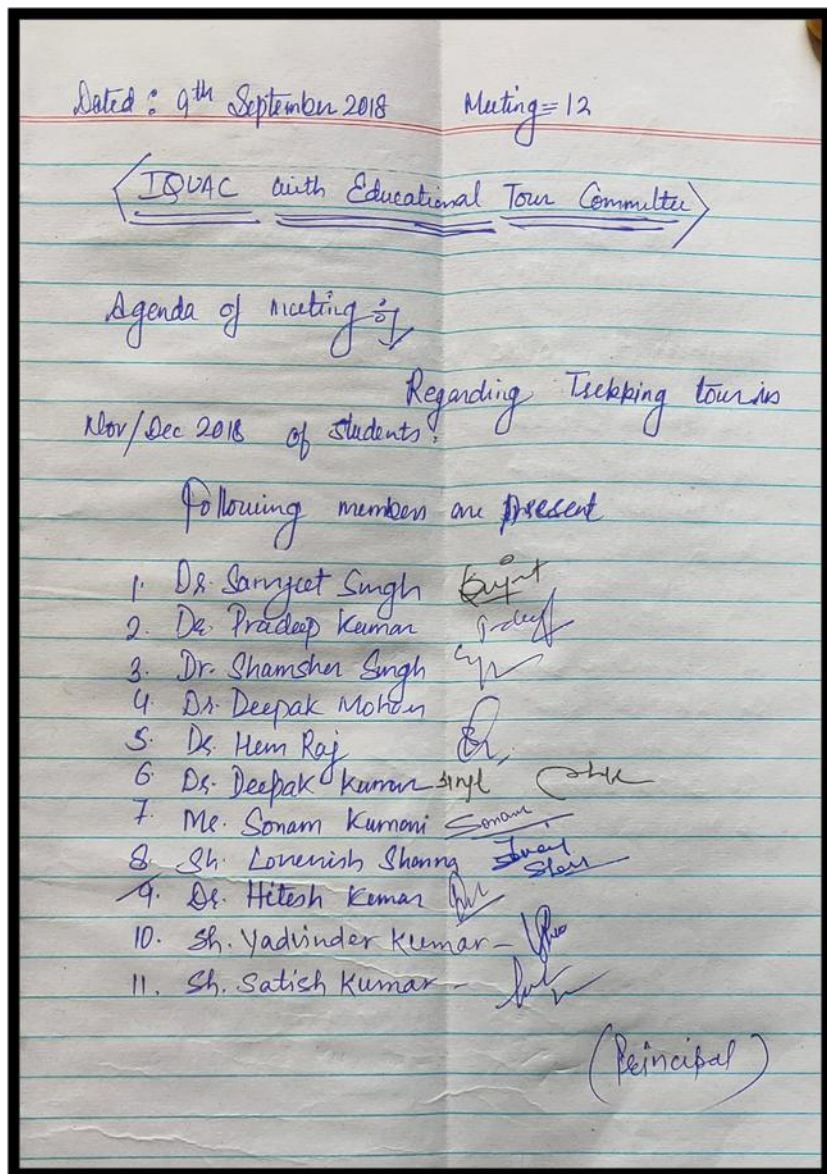 Dated : 9th September 2018 Meeting = 12
IQUAC with Educational Tour Committee
Agenda of meeting :-
Regarding Trekking tour in
Nov/Dec 2018 of students.
Following members are present
1. Dr. Sarvjeet Singh
2. Dr. Pradeep Kumar
3. Dr. Shamsher Singh
4. Dr. Deepak Mohan
5. Dr. Hem Raj
6. Dr. Deepak Kumar
7. Me. Sonam Kumari Sonam
8. Sh. Lovenish Sharma
9. Dr. Hitesh Kumar
10. Sh. Yadvinder Kumar -
11. Sh. Satish Kumar -
(Principal)